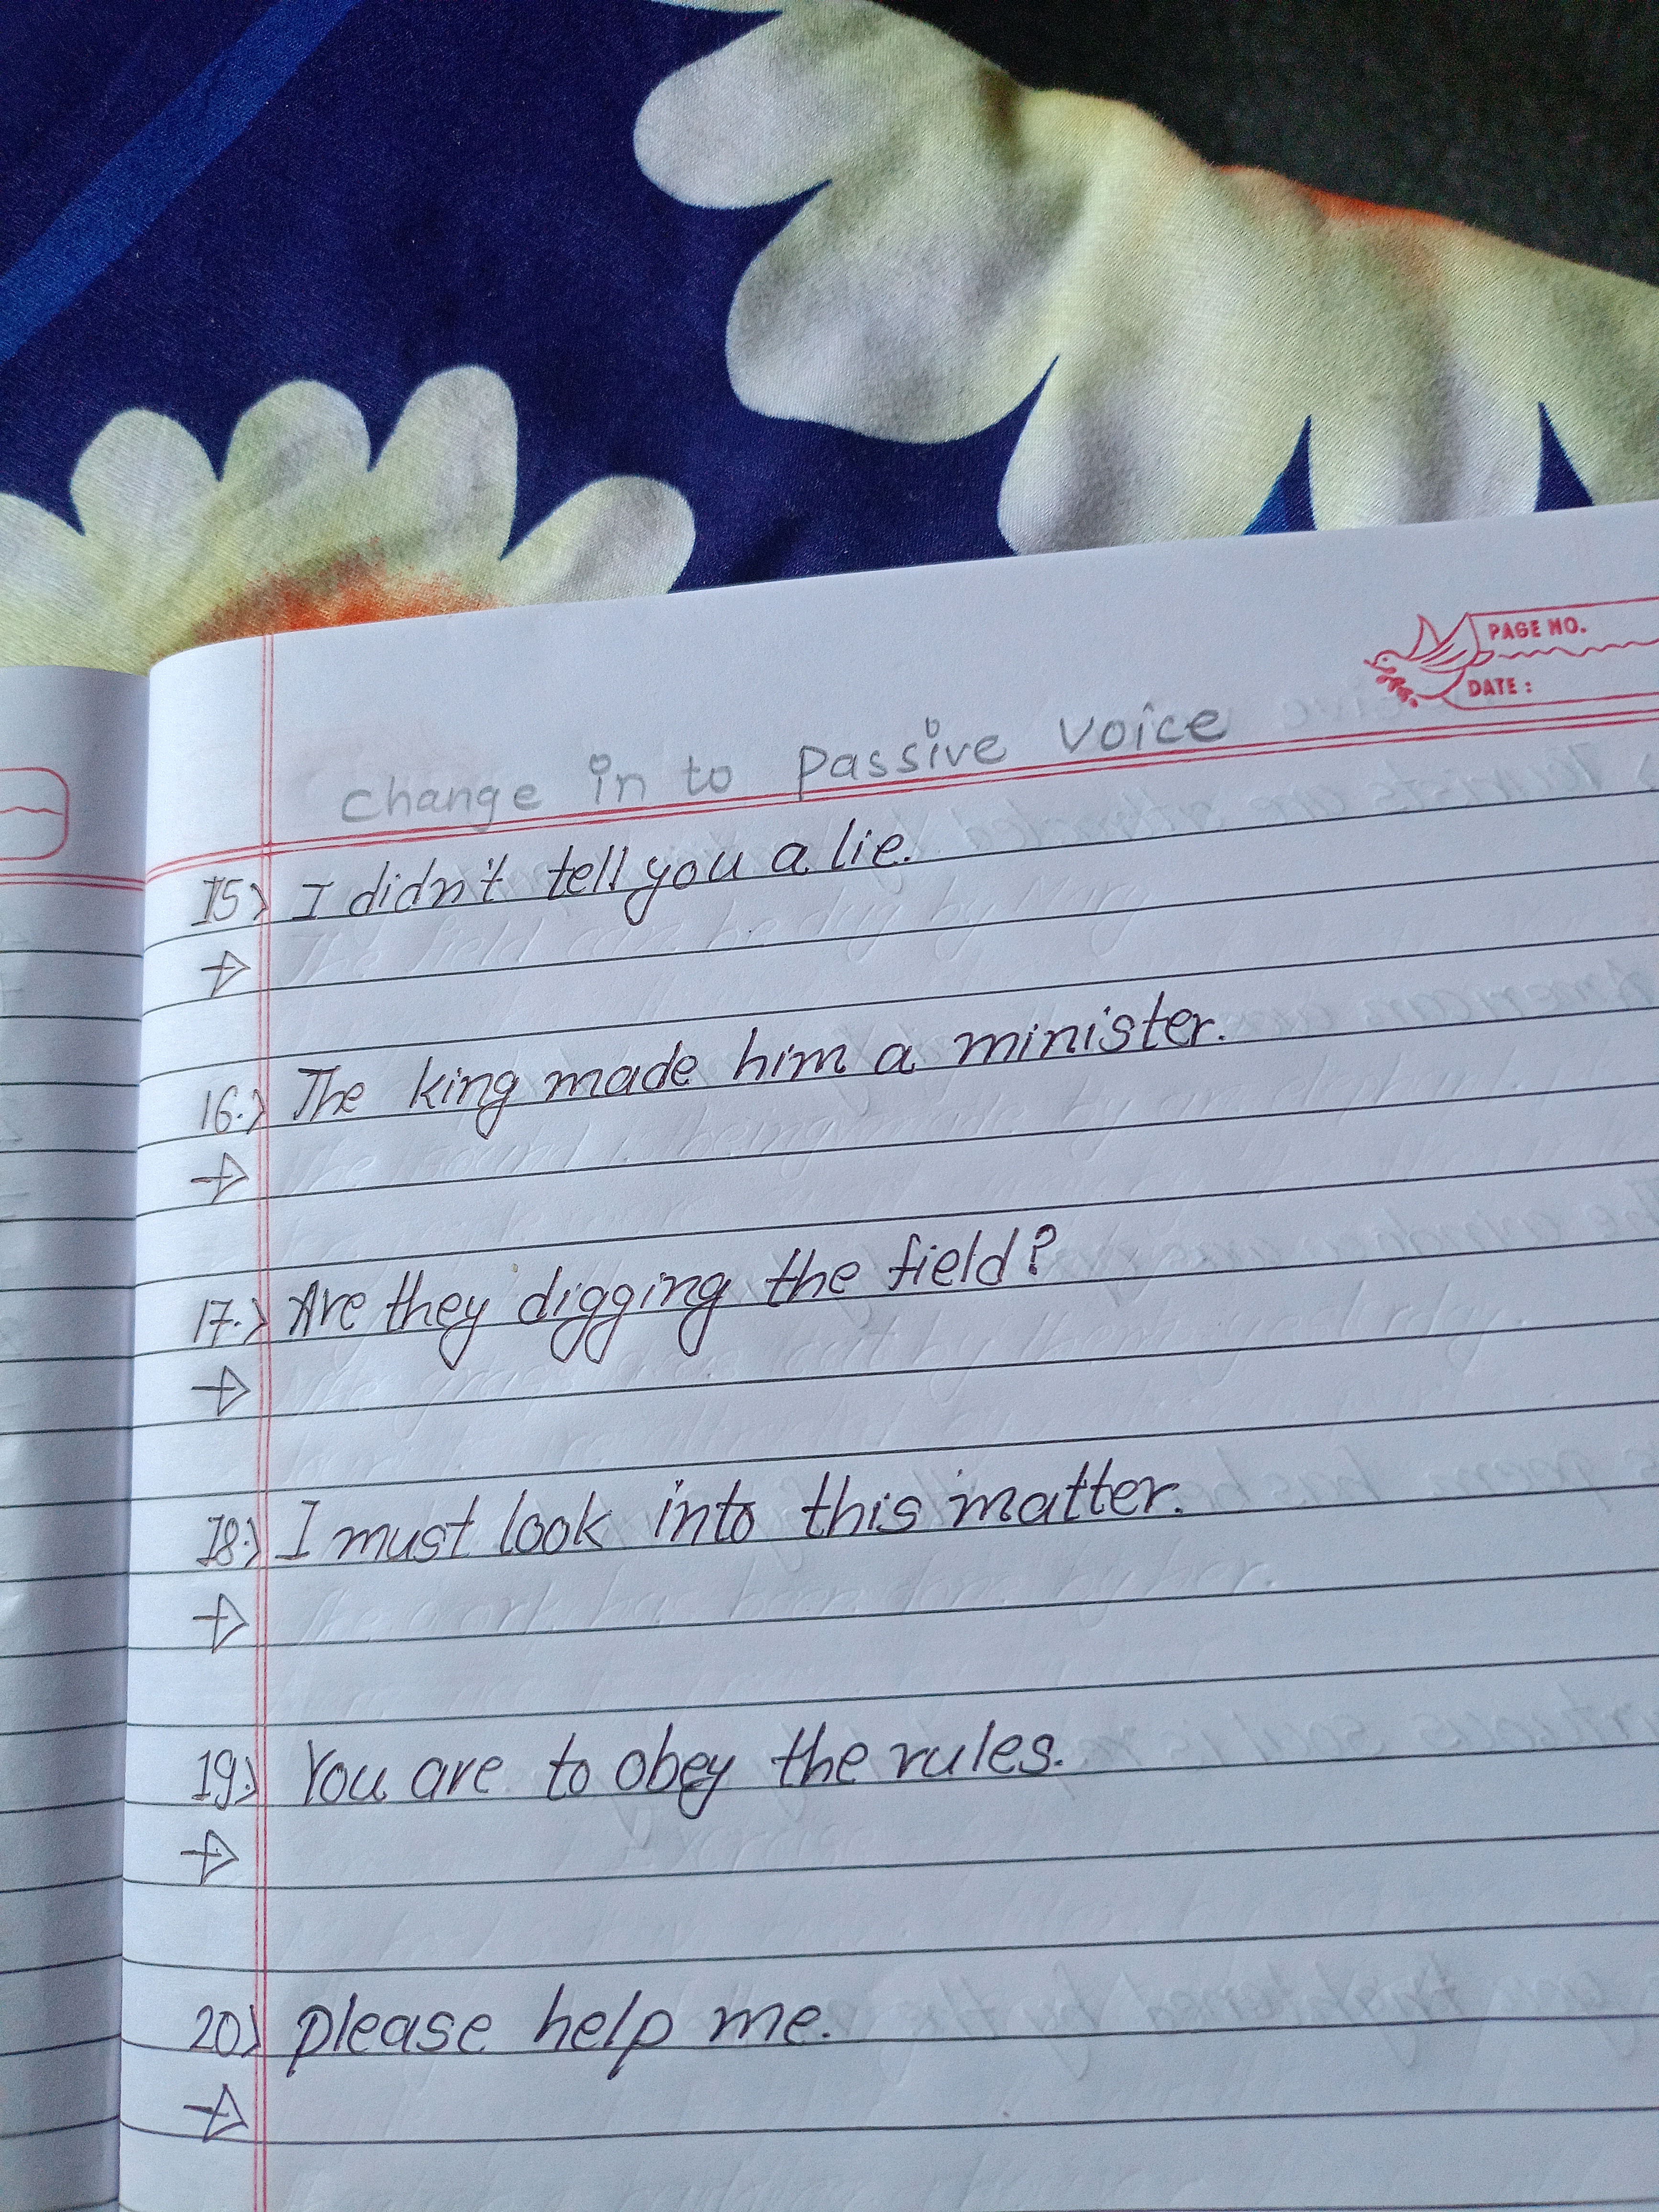 PAGE NO.
DATE :
change in to passive voice
15) I didn't tell you a lie.
→
16.) The king made him a minister.
→
17.) Are they digging the field?
→
18.) I must look into this matter.
→
19.) You are to obey the rules.
→
20) please help me.
→